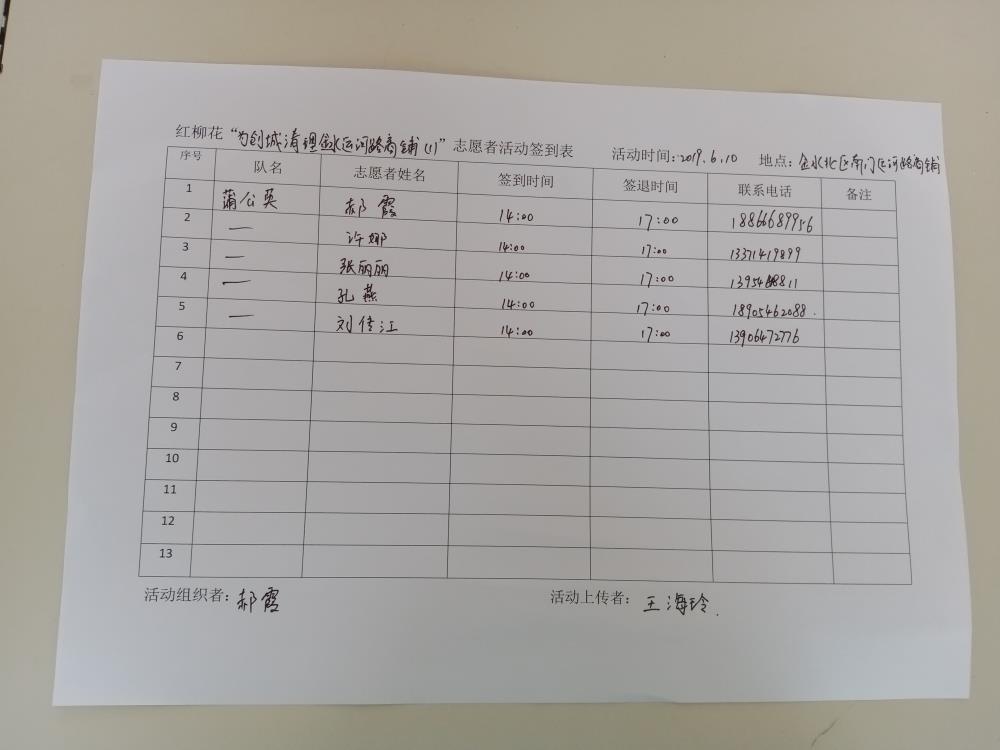 红柳花“为创城清理金水运河路商铺(1)”志愿者活动签到表 活动时间:2019.6.10 地点:金水北区南门运河路商铺
序号 队名 志愿者姓名 签到时间 签退时间 联系电话 备注
1 蒲公英 郝霞 14:00 17:00 18866689956
2 — 许娜 14:00 17:00 13371419899
3 — 张丽丽 14:00 17:00
4 — 孔燕 14:00 17:00 18905462088.
5 — 刘传江 14:00 17:00 13906472776
6
7
8
9
10
11
12
13
活动组织者:郝霞 活动上传者:王海玲.